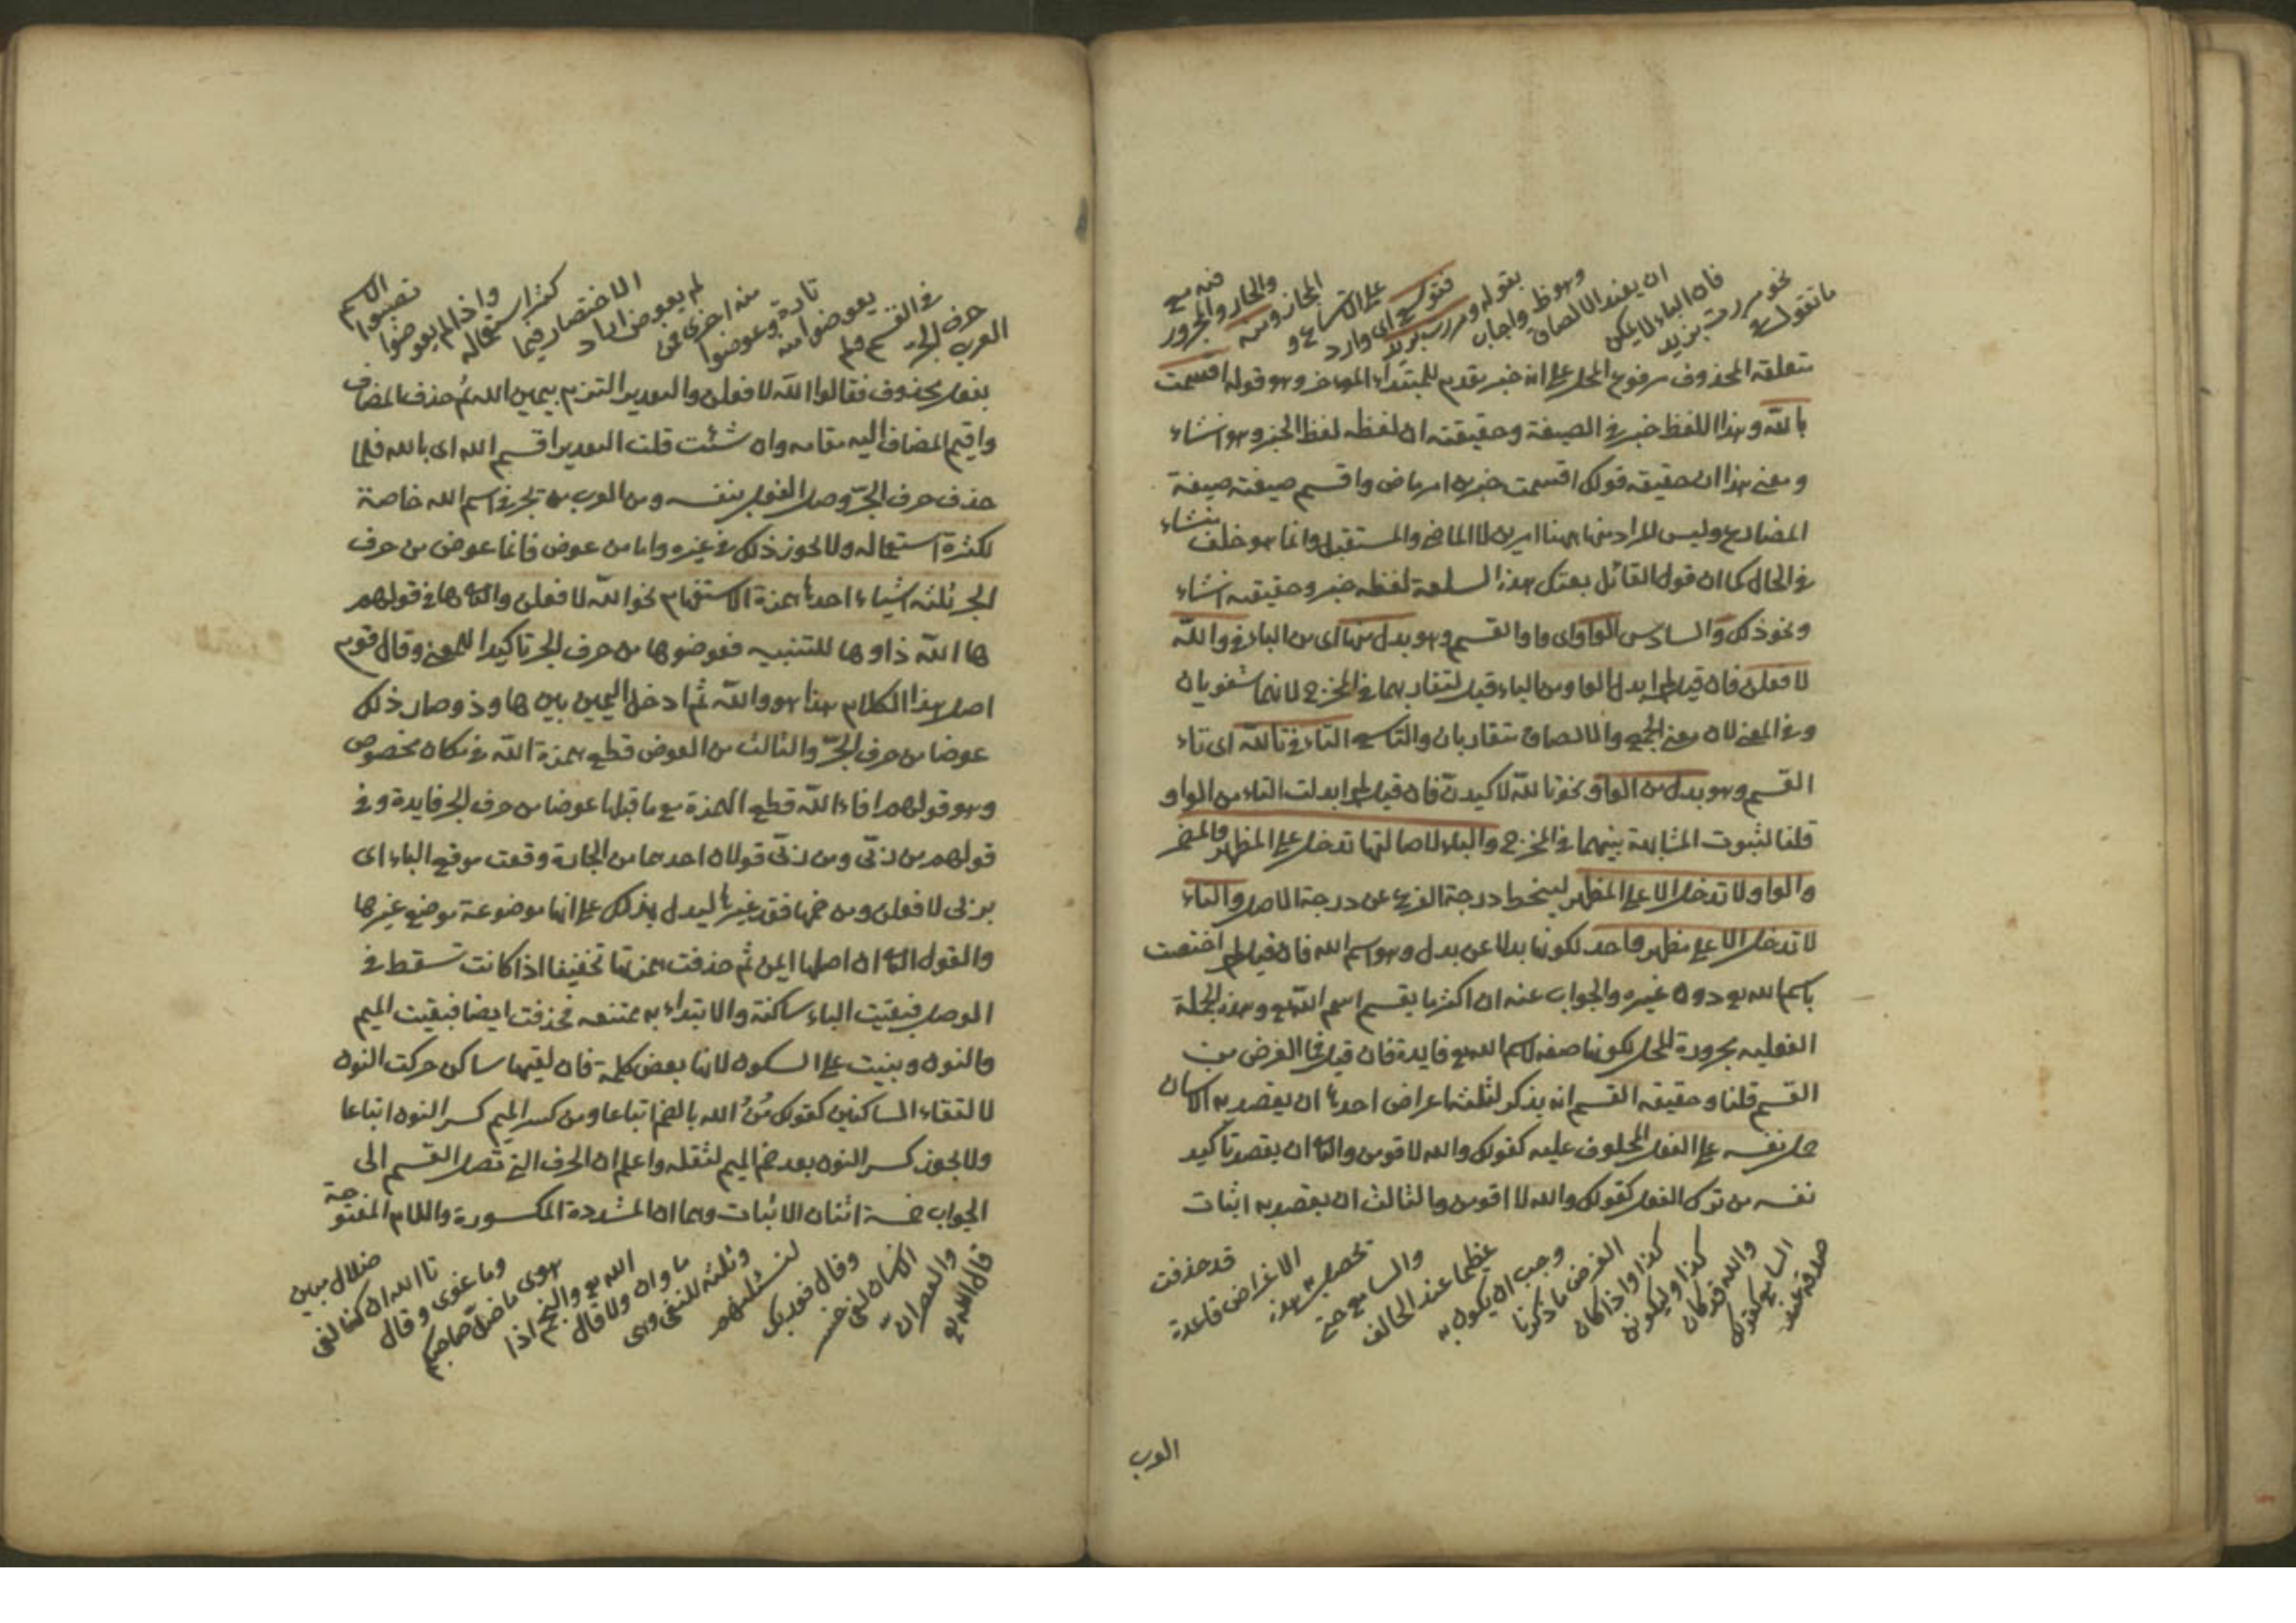 ما تقول في
نحو مررت بزيد
فان الباء لا يمكن
ان يفيد الالصاق
وهو ظ واجاب
بقوله ومررت بزيد
اى وارد
على الاتساع و
المجاز ومنه
والجار والمجرور
فيه مع
متعلقه المحذوف مرفوع المحل على انه خبر تقدم للمبتداء الموءخر وهو قوله اقسمت
بالله وهذا اللفظ خبر في الصيغة وحقيقته ان لفظه لفظ الخبر وهو انشاء
ومعنى هذا ان حقيقة قولك اقسمت خبر من امر ماض واقسم صيغته صيغة
المضارع وليس المراد منها ههنا امرين لا الماضي والمستقبل وانما هو خلف ينشاء
في الحال كما ان قول القائل بعتك هذه السلعة لفظه خبر وحقيقته انشاء
ونحو ذلك والسادس الواو اى واو القسم وهو بدل منها اى من الباء في والله
لافعلن فان قيل لم ابدل الواو من الباء قيل لتقاربهما في المخرج لانهما شفويان
وفي المعنى لان معنى الجمع والالصاق متقاربان والتاسع التاء في تالله اى تاء
القسم وهو بدل من الواو نحو تالله لاكيدن فان قيل لم ابدلت التاء من الواو
قلنا لثبوت المشابهة بينهما في المخرج والباء لاصالتها تدخل على المظهر والمضمر
والواو لا تدخل الا على المظهر لينحط درجة الفرع عن درجة الاصل والتاء
لا تدخل الا على مظهر واحد لكونها بدلا عن بدل وهو اسم الله فان قيل لم اختصت
باسم الله تع دون غيره والجواب عنه ان اكثر ما يقسم اسم الله تع وهذه الجملة
الفعلية مجرورة المحل لكونها صفة لاسم الله تع فايدة فان قيل فما الغرض من
القسم قلنا وحقيقة القسم انه يذكر لثلثة اعراض احدها ان يقصد به الانسان
حمل نفسه على الفعل المحلوف عليه كقولك والله لاقومن والثانى ان يقصد تأكيد
نفسه من ترك الفعل كقولك والله لا اقومن والثالث ان يقصد به اثبات
صدقه عند
السامع كقولك
والله قد كان
كذا وليكونن
كذا واذا كان
الغرض ما ذكرنا
وجب ان يكون به
عظيما عند الحالف
والسامع حتى
تحصل به هذه
الاغراض قاعدة
قد حذفت
العرب
العرب
حرف الجر
في القسم فلم
يعوضوا منه
تارة وعوضوا
منه اخرى فمن
لم يعوض اراد
الاختصار فيما
كثر استعماله
واذا لم يعوضوا
نصبوا
الاسم
بفعل محذوف فقالوا الله لافعلن والتقدير التزم يمين الله ثم حذف المضاف
واقيم المضاف اليه مقامه وان شئت قلت التقدير اقسم الله اى بالله فلما
حذف حرف الجر وصل الفعل بنفسه ومن العرب من يجر في اسم الله خاصة
لكثرة استعماله ولا يجوز ذلك في غيره واما من عوض فانما عوض من حرف
الجر ثلثة اشياء احدها همزة الاستفهام نحو الله لافعلن والثانى ها في قولهم
ها الله ذا وها للتنبيه فعوضوها من حرف الجر تاكيدا للمعنى وقال قوم
اصل هذا الكلام هذا هو والله ثم ادخل اليمين بين ها وذو صار ذلك
عوضا من حرف الجر والثالث من العوض قطع همزة الله في مكان مخصوص
وهو قولهم افاءالله قطع الهمزة مع ما قبلها عوضا من حرف الجر فايدة وفي
قولهم من ربى ومن ربى قولان احدهما من الجارة وقعت موقع الباء اى
بربى لافعلن ومن ضمها فقد غيرها ليدل بذلك على انها موضوعة موضع غيرها
والقول الثانى ان اصلها ايمن ثم حذفت همزتها تخفيفا اذا كانت تسقط في
الوصل فبقيت الياء ساكنة والابتداء به ممتنعه فحذفت ايضا فبقيت الميم
والنون وبنيت على السكون لانها بعض كلمة فان لقيها ساكن حركت النون
لالتقاء الساكنين كقولك مُنُ الله بالضم اتباعا ومن كسر الميم كسر النون اتباعا
ولا يجوز كسر النون بعد ضم الميم لثقله واعلم ان الحرف التى تصل القسم الى
الجواب خمسة اثنان للاثبات وهما ان المشددة المكسورة واللام المفتوحة
قال الله تع
والعصر ان
الانسان لفى خسر
وقال فوربك
لنسئلنهم
وثلثة للنفى وهى
ما وان ولا قال
الله تع والنجم اذا
هوى ما ضل صاحبكم
وما غوى وقال
تا الله ان كنا لفى
ضلال مبين